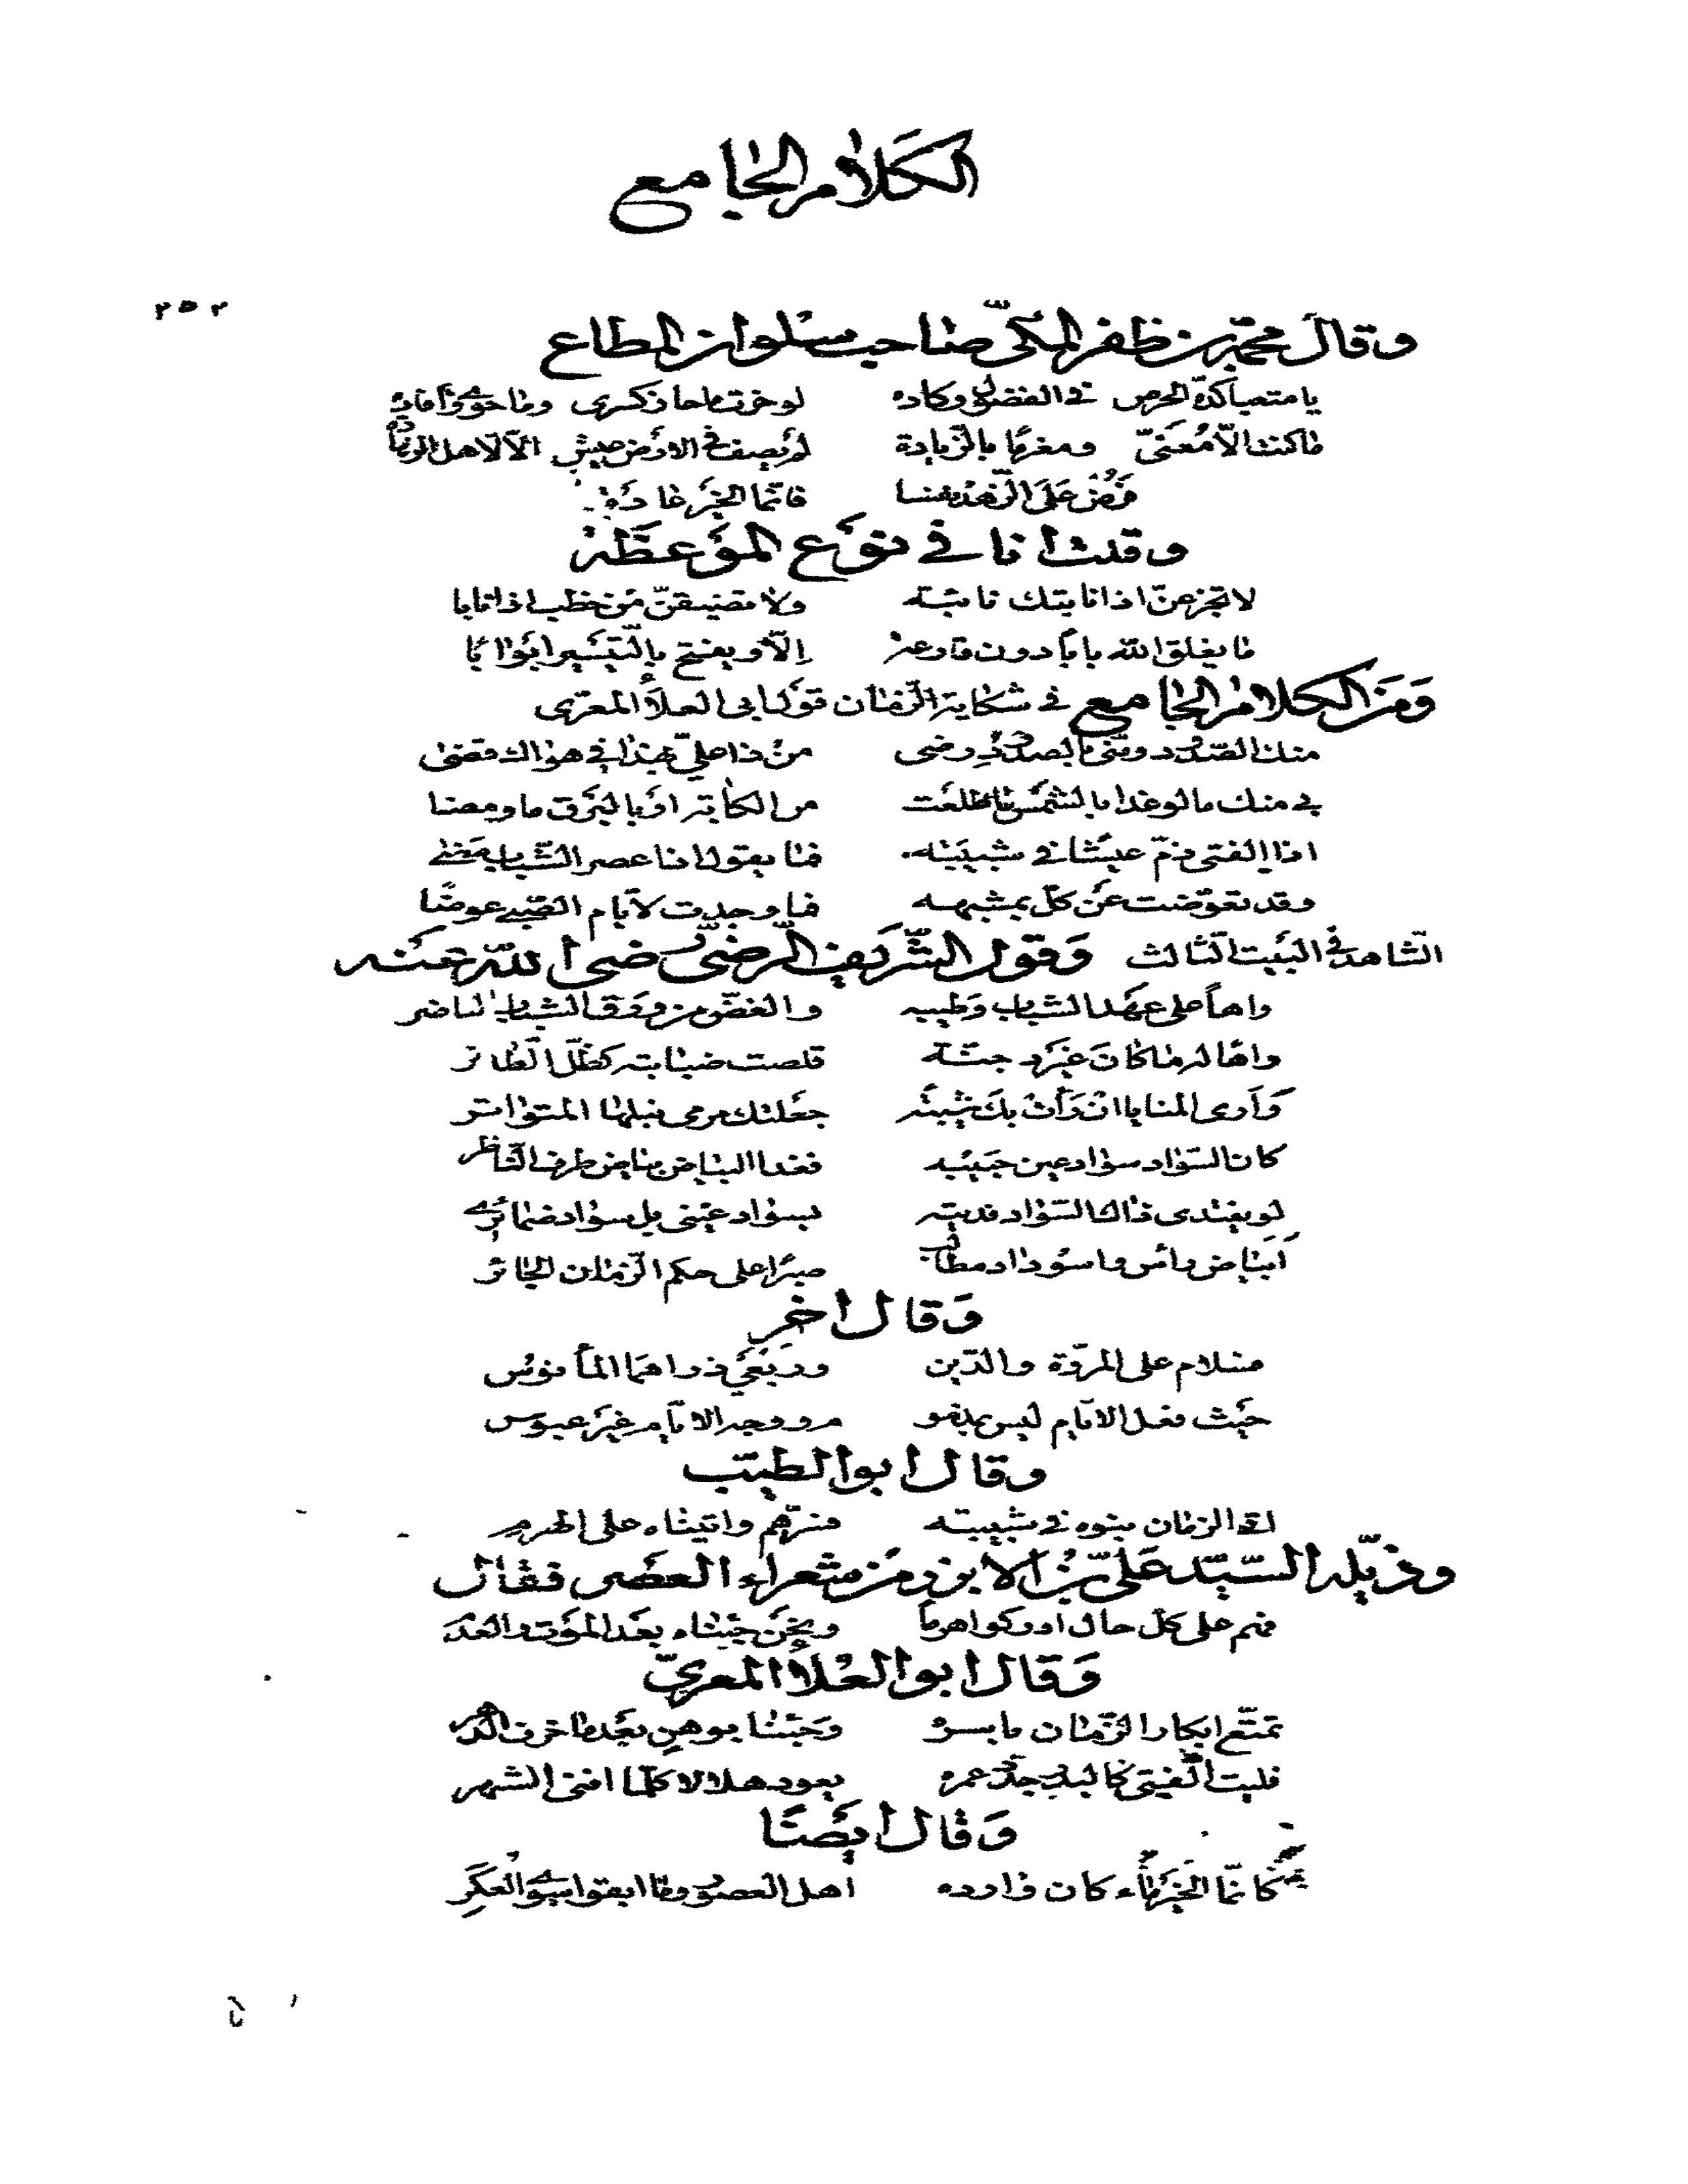 الكلام الجامع
٢٥٢
وقال محمد بن ظفر المكي صاحب سلوان المطاع
يا متعبا كده الحرص في الفضول وكاده لو حزت ما حاز كسرى وما حوى وأفاده
ما كنت الا معنى ومغرما بالزيادة لم يصف في الارض عيش الا لاهل الزهادة
فرض على الزهد نفسا فانما الخير عادة
وقلت انا في نوع الموعظة
لا تجزعن اذا نابتك نائبة ولا تضيقن من خطب اذا نابا
ما يغلق الله بابا دون قارعة الا ويفتح بالتيسير ابوابا
ومن الكلام الجامع في شكاية الزمان قول ابي العلا المعري
منك الصدود ومني بالصدود رضى من ذا علي بهذا في هواك قضى
بي منك ما لو غدا بالشمس ما طلعت من الكابة او بالبرق ما ومضا
اذا الفتى ذم عيشا في شبيبته فما يقول اذا عصر الشباب مضى
وقد تعوضت عن كل بمشبهه فما وجدت لايام الصبى عوضا
الشاهد في البيت الثالث وقول الشريف الرضي رضي الله عنه
واها على عهد الشباب وطيبه والغض من ورق الشباب الناضر
واها له ما كان غير دجنة قلصت ضبابته كظل الطائر
وأرى المنايا ان رأت بك شيبة جعلتك مرمى نبلها المتواتر
كان السواد سواد عين حبيبه فغدا البياض بياض طرف الناظر
لو يفتدى ذاك السواد فديته بسواد عيني بل سواد ضمائري
أبياض رأس واسوداد مطالب صبرا على حكم الزمان الجائر
وقال اخر
سلام على المروة والدين وربعي ذراهما المأنوس
حيث فعل الايام ليس بمذمو م ووجه الايام غير عبوس
وقال ابو الطيب
اتى الزمان بنوه في شبيبته فسرهم واتيناه على الهرم
وذيله السيد علي بن الابزر من شعراء العصر فقال
فهم على كل حال ادركوا هرما ونحن جئناه بعد الموت والعدم
وقال ابو العلا المعري
تمتع ابكار الزمان بايسره وجئنا بوهن بعدما خرف الدهر
فليت الفتى كالبدر جدد عمره يعود هلالا كلما افنى الشهر
وقال ايضا
كانما الخير ماء كان وارده اهل العصور وما ابقوا سوى العكر